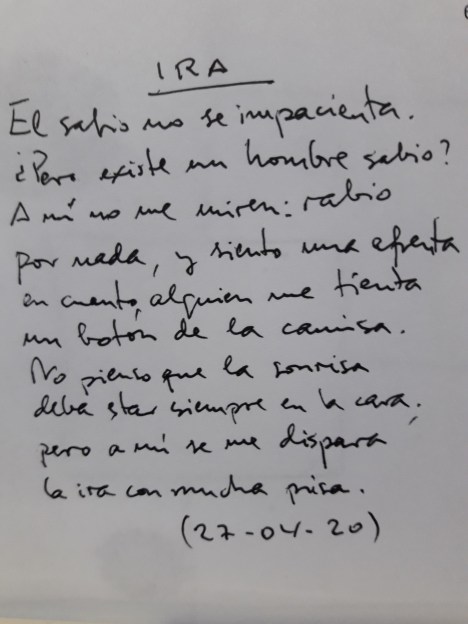 IRA
El sabio no se impacienta.
¿Pero existe un hombre sabio?
A mí no me miren: rabio
por nada, y siento una afrenta
en cuanto alguien me tienta
un botón de la camisa.
No pienso que la sonrisa
deba estar siempre en la cara,
pero a mí se me dispara
la ira con mucha prisa.
(27-04-20)